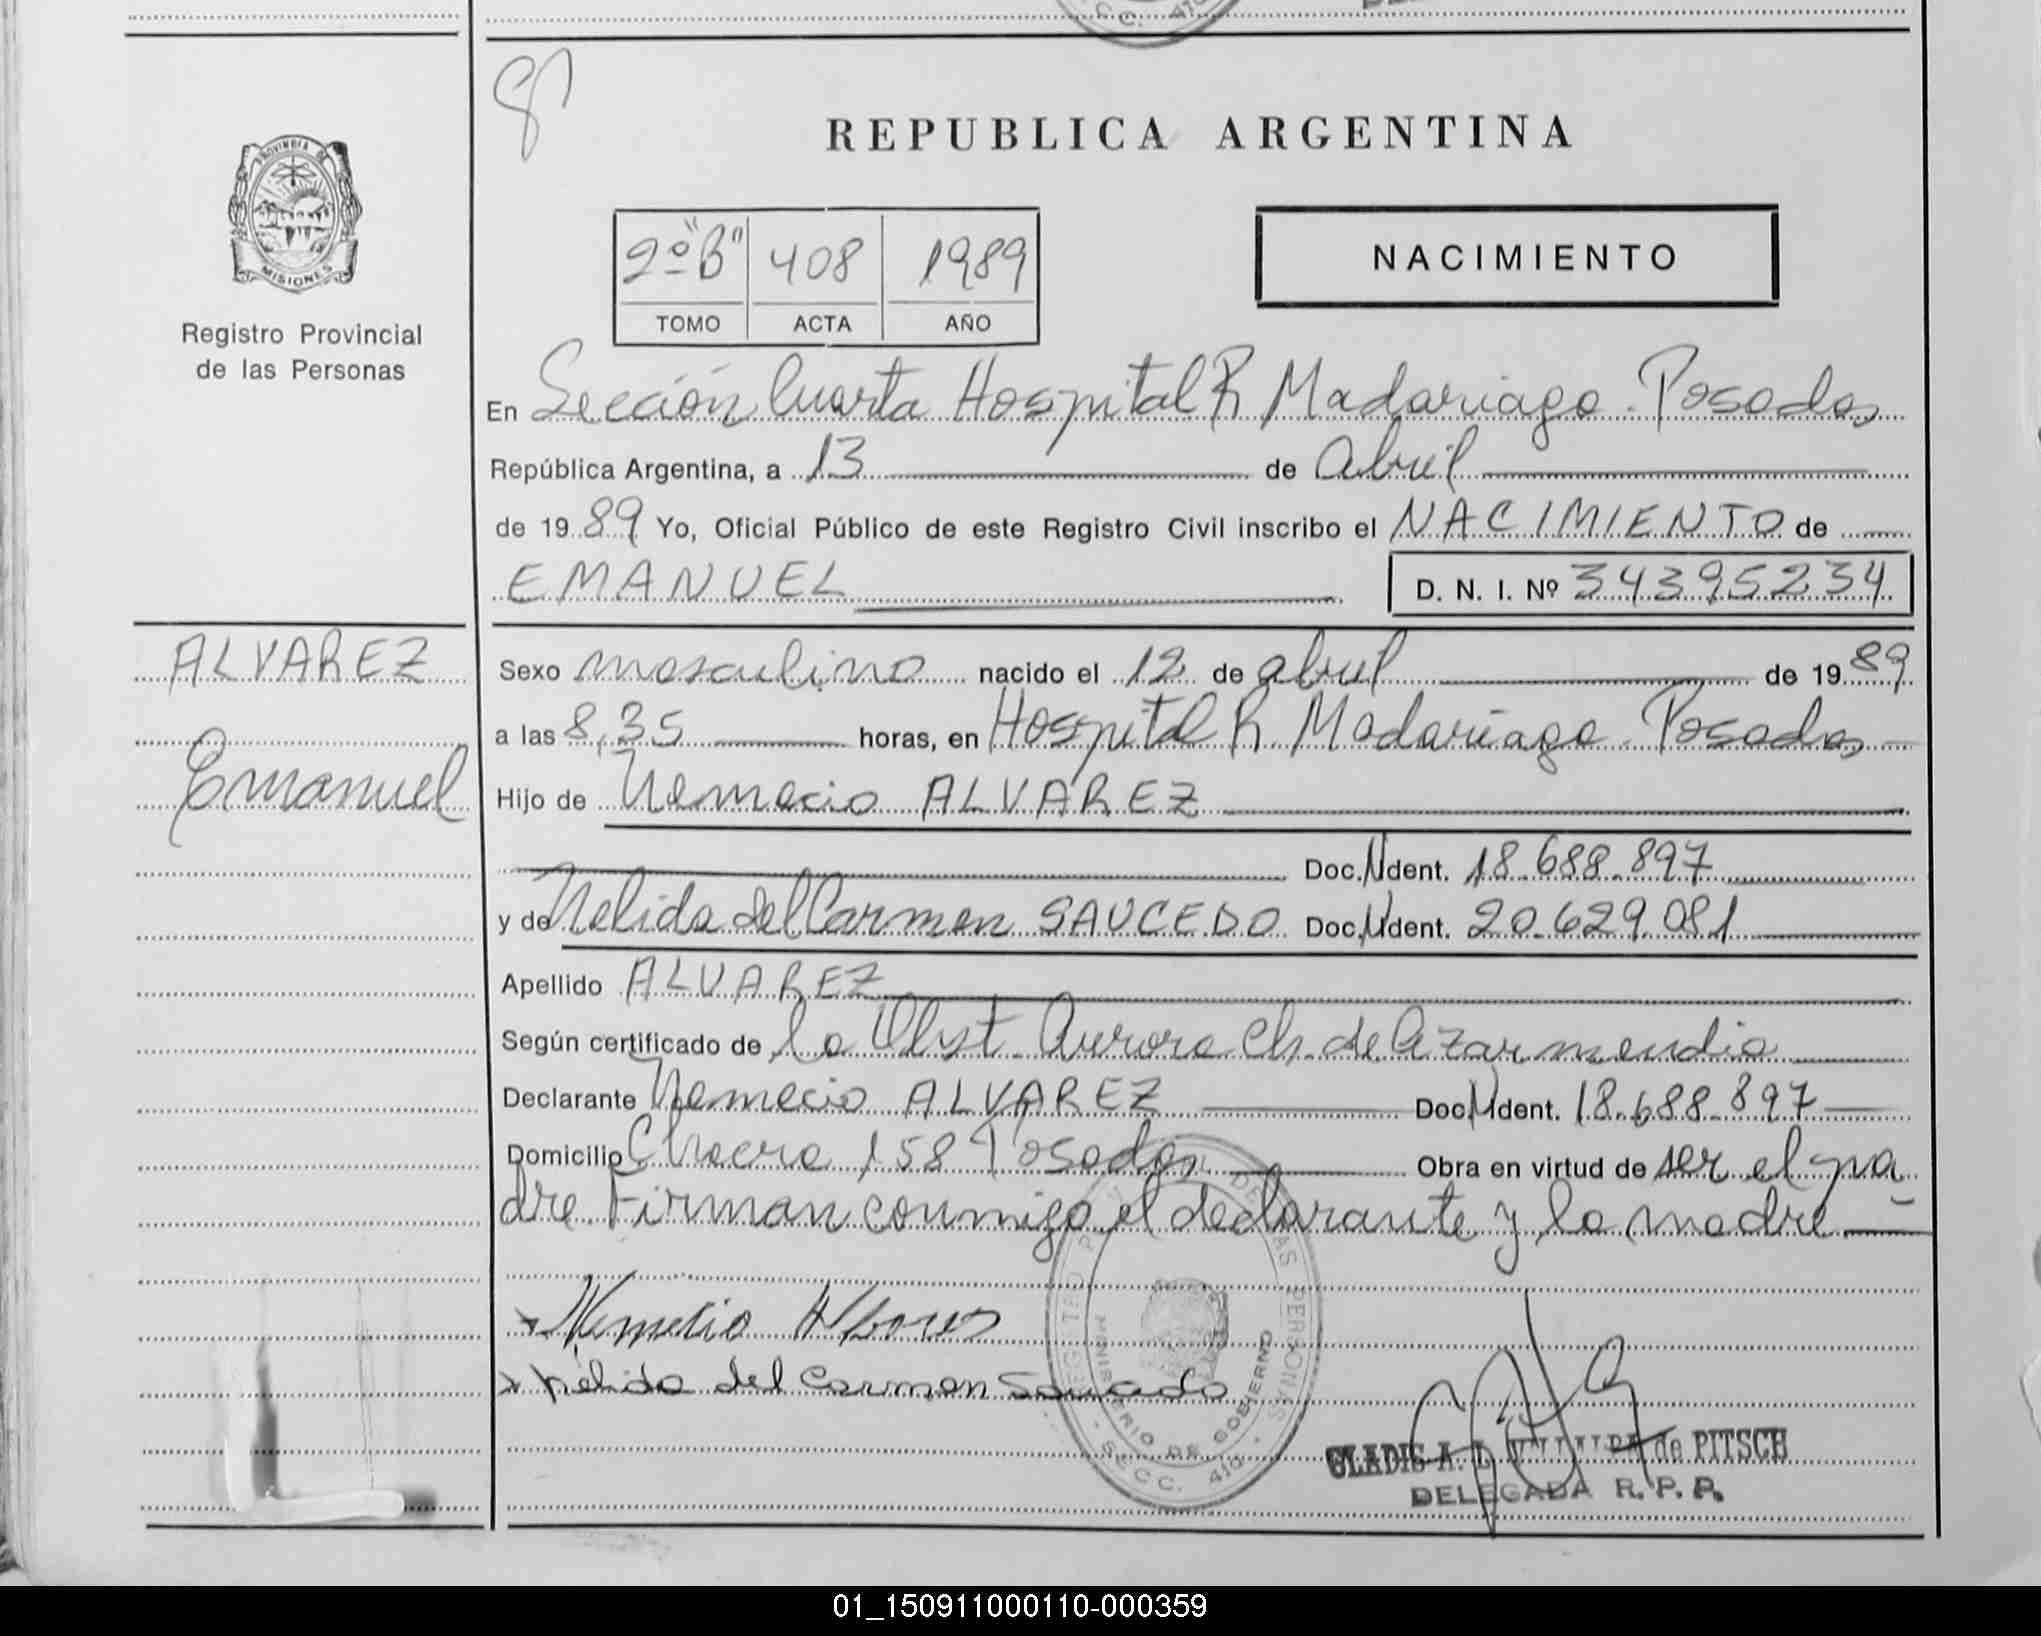 PROVINCIA DE
MISIONES
Registro Provincial
de las Personas
REPUBLICA ARGENTINA
2º "B" 408 1989
TOMO ACTA AÑO
NACIMIENTO
En Sección Cuarta Hospital R Madariaga. Posadas
República Argentina, a 13 de abril
de 1989 Yo, Oficial Público de este Registro Civil inscribo el NACIMIENTO de
EMANUEL D. N. I. Nº 34395234
ALVAREZ
Emanuel
Sexo masculino nacido el 12 de abril de 1989
a las 8,35 horas, en Hospital R. Madariaga. Posadas
Hijo de Nemecio ALVAREZ
Doc. Ident. 18.688.897
y de Nelida del Carmen SAUCEDO Doc. Ident. 20.629.081
Apellido ALVAREZ
Según certificado de la Obst. Aurora Ch. de Azarmendia
Declarante Nemecio ALVAREZ Doc. Ident. 18.688.897
Domicilio Chacra 158 Posadas Obra en virtud de ser el pa
dre. Firman conmigo el declarante y la madre
Nemecio
Nélida del Carmen Saucedo
MINISTERIO DE GOBIERNO
SECC. 410
GLADIS A. de PITSCH
DELEGADA R. P. P.
01_150911000110-000359